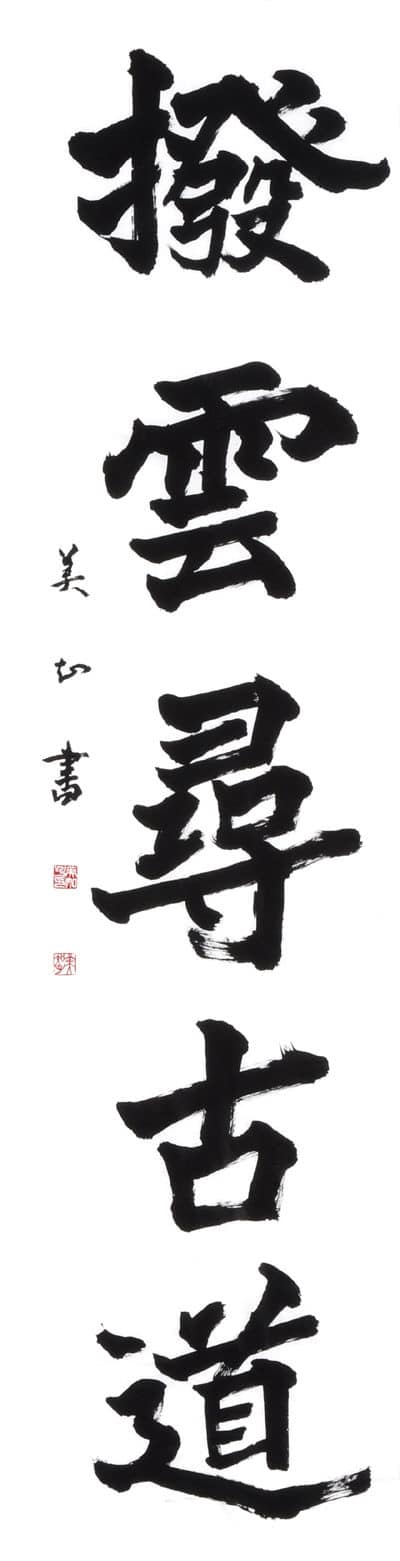 撥雲尋古道
美知書